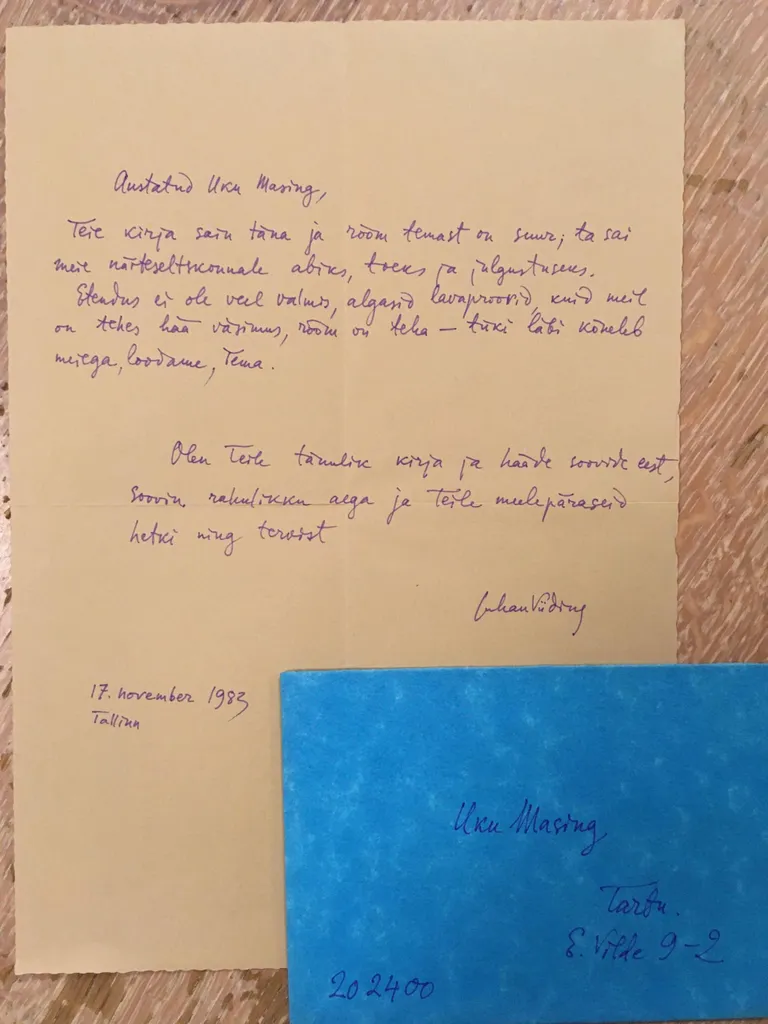 Austatud Uku Masing,
Teie kirja sain täna ja rõõm temast on suur; ta sai
meie närteseltskonnale abiks, toeks ja julgustuseks.
Etendus ei ole veel valmis, algasid lavaproovid, kuid meil
on tehes hää väsimus, rõõm on teha – tüki läbi kõneleb
meiega, loodame, Tema.
Olen Teile tänulik kirja ja hääde soovide eest,
soovin rahulikku aega ja Teile meelepäraseid
hetki ning tervist
Juhan Viiding
17. november 1983
Tallinn
Uku Masing
Tartu.
E. Vilde 9–2
202400